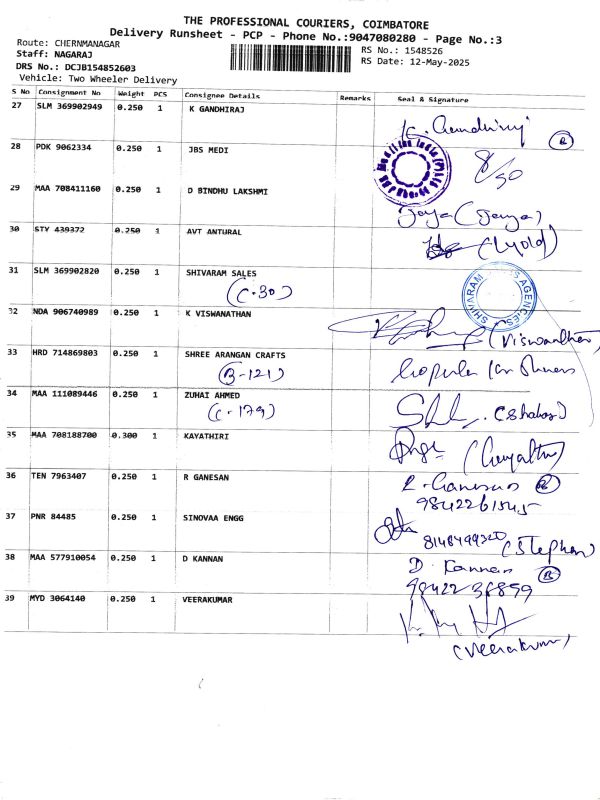 THE PROFESSIONAL COURIERS, COIMBATORE
Delivery Runsheet - PCP - Phone No.:9047080280 - Page No.:3
Route: CHERNMANAGAR
Staff: NAGARAJ
DRS No.: DCJB154852603
Vehicle: Two Wheeler Delivery
RS No.: 1548526
RS Date: 12-May-2025
S No Consignment No Weight PCS Consignee Details Remarks Seal & Signature
27 SLM 369902949 0.250 1 K GANDHIRAJ
K. Gandhiraj R
28 PDK 9062334 0.250 1 JBS MEDI
8/50
29 MAA 708411160 0.250 1 D BINDHU LAKSHMI
Jaya (Jaya)
30 STY 439372 0.250 1 AVT ANTURAL
31 SLM 369902820 0.250 1 SHIVARAM SALES
(C-30)
SHIVARAM AGENCIES
32 NDA 906740989 0.250 1 K VISWANATHAN
(Viswanathan)
33 HRD 714869803 0.250 1 SHREE ARANGAN CRAFTS
(B-121)
34 MAA 111089446 0.250 1 ZUHAI AHMED
(C-179)
35 MAA 708188700 0.300 1 KAYATHIRI
36 TEN 7963407 0.250 1 R GANESAN
R. Ganesan R
9842261545
37 PNR 84485 0.250 1 SINOVAA ENGG
8148499320 (Stephan)
38 MAA 577910054 0.250 1 D KANNAN
D. Kannan R
9842236859
39 MYD 3064140 0.250 1 VEERAKUMAR
(Veerakumar)